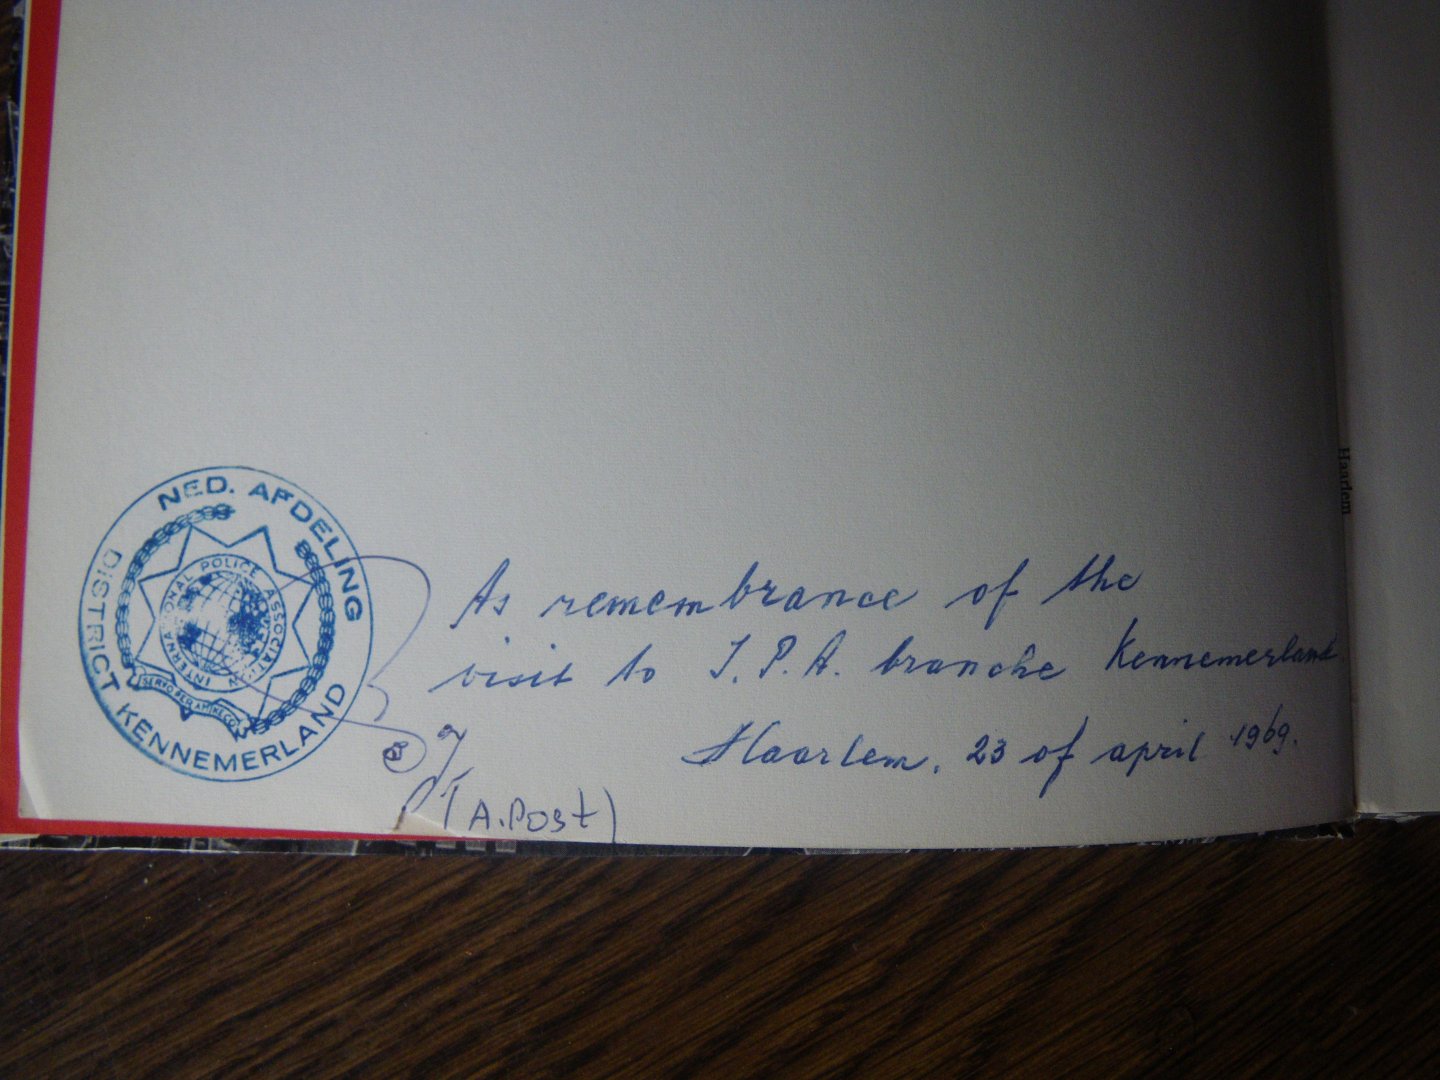 NED. AFDELING
DISTRICT KENNEMERLAND
INTERNATIONAL POLICE ASSOCIATION
SERVO PER AMIKECO
As remembrance of the
visit to I.P.A. branche Kennemerland
Haarlem, 23 of april 1969.
(A. Post)
Haarlem